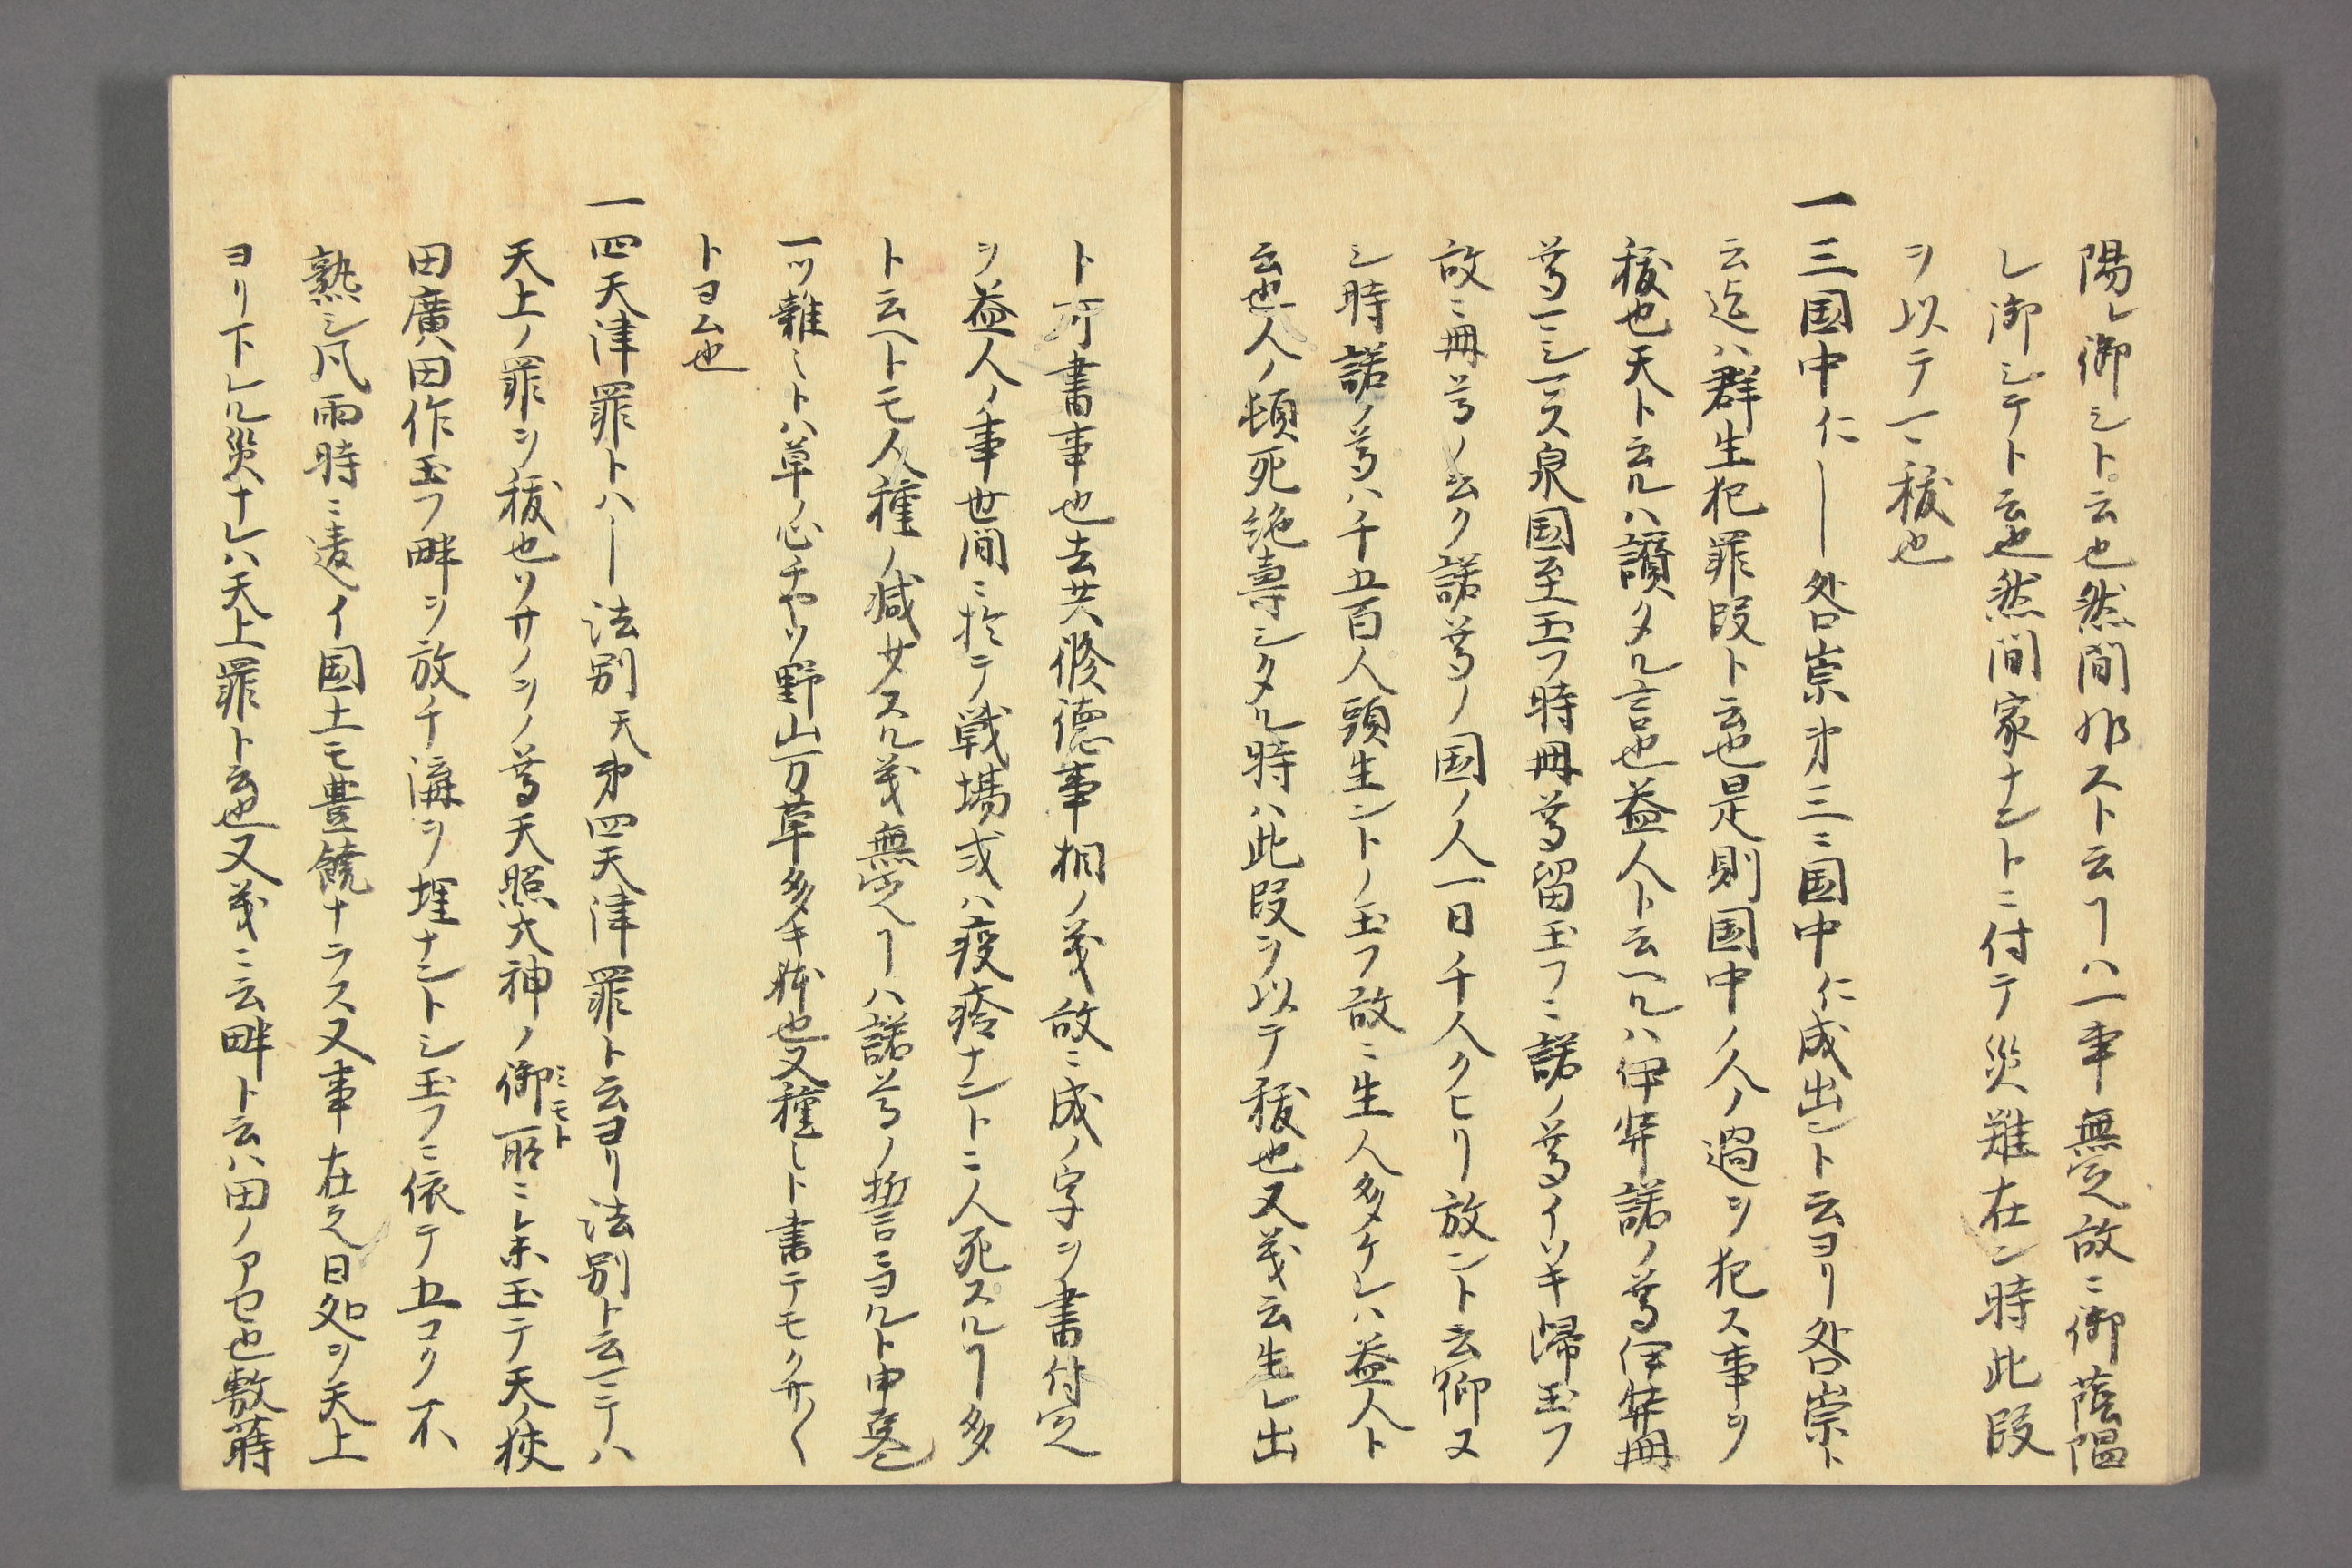 陽レ御シト云也然間邪スト云ヿハ一事無之故ニ御蔭陽
レ御シテト云也然間家ナントニ付テ災難在ン時此段
ヲ以テ一ニ祓也
一三国中仁―咎祟第三ニ国中仁成出ントヨリ咎祟ト
云迄ハ群生犯罪段ト云也是則国中ノ人ノ過ヲ犯ス事ヲ
祓也天ト云ルハ讃タル言也益人ト云ヘルハ伊弉諾ノ尊伊弉冊
尊ニシ〼ス泉国至玉フ時冊尊留玉フニ諾ノ尊イソキ歸玉フ
故ニ冊尊ノ云ク諾尊ノ国ノ人一日千人クヒリ放ント云仰又
シ時諾ノ尊ハ千五百人頭生ントノ玉フ故ニ生人多ケレハ益人ト
云也人ノ頓死絶壽シタル時ハ此段ヲ以テ祓也又義云生レ出
ト可書事也去共修德事相ノ義故ニ成ノ字ヲ書付之
ヲ益人ノ事世間ニ於テ戦場或ハ疫癘ナントニ人死スルヿ多
ト云ヘトモ人種ノ減サスル義無之ヿハ諾尊ノ誓ニヨルト申
一ツ雜ミトハ草ノ心チヤツ野山万草多キ躰也又種ミト書テモクサ〱
トヨム也
一四天津罪トハ―法別天第四天津罪ト云ヨリ法別ト云ニテハ
天上ノ罪ヲ祓也ソサノヲノ尊天照大神ノ御所ニ参玉テ天ノ狹
田廣田作玉フ畔ヲ放チ溝ヲ埋ナントシ玉フニ依テ五コク不
熟シ風雨時ニ違イ国土モ豊饒ナラス又事在之日処ヲ天上
ヨリ下レル災ナレハ天上罪ト云也又義ニ云畔ト云ハ田ノアセ也敷蒔